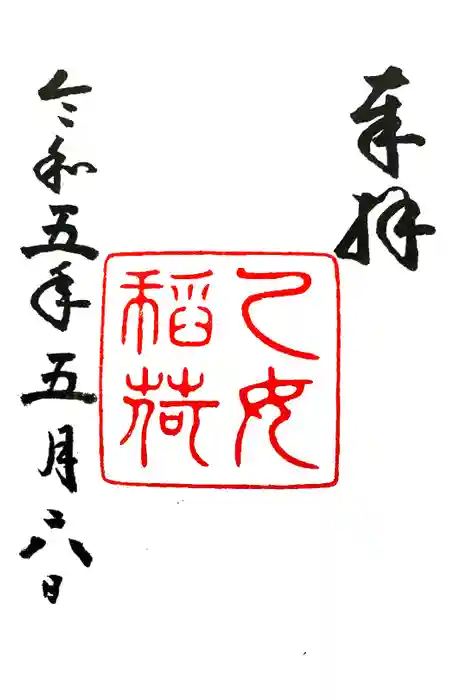 奉拝
乙女
稲荷
令和五年五月六日